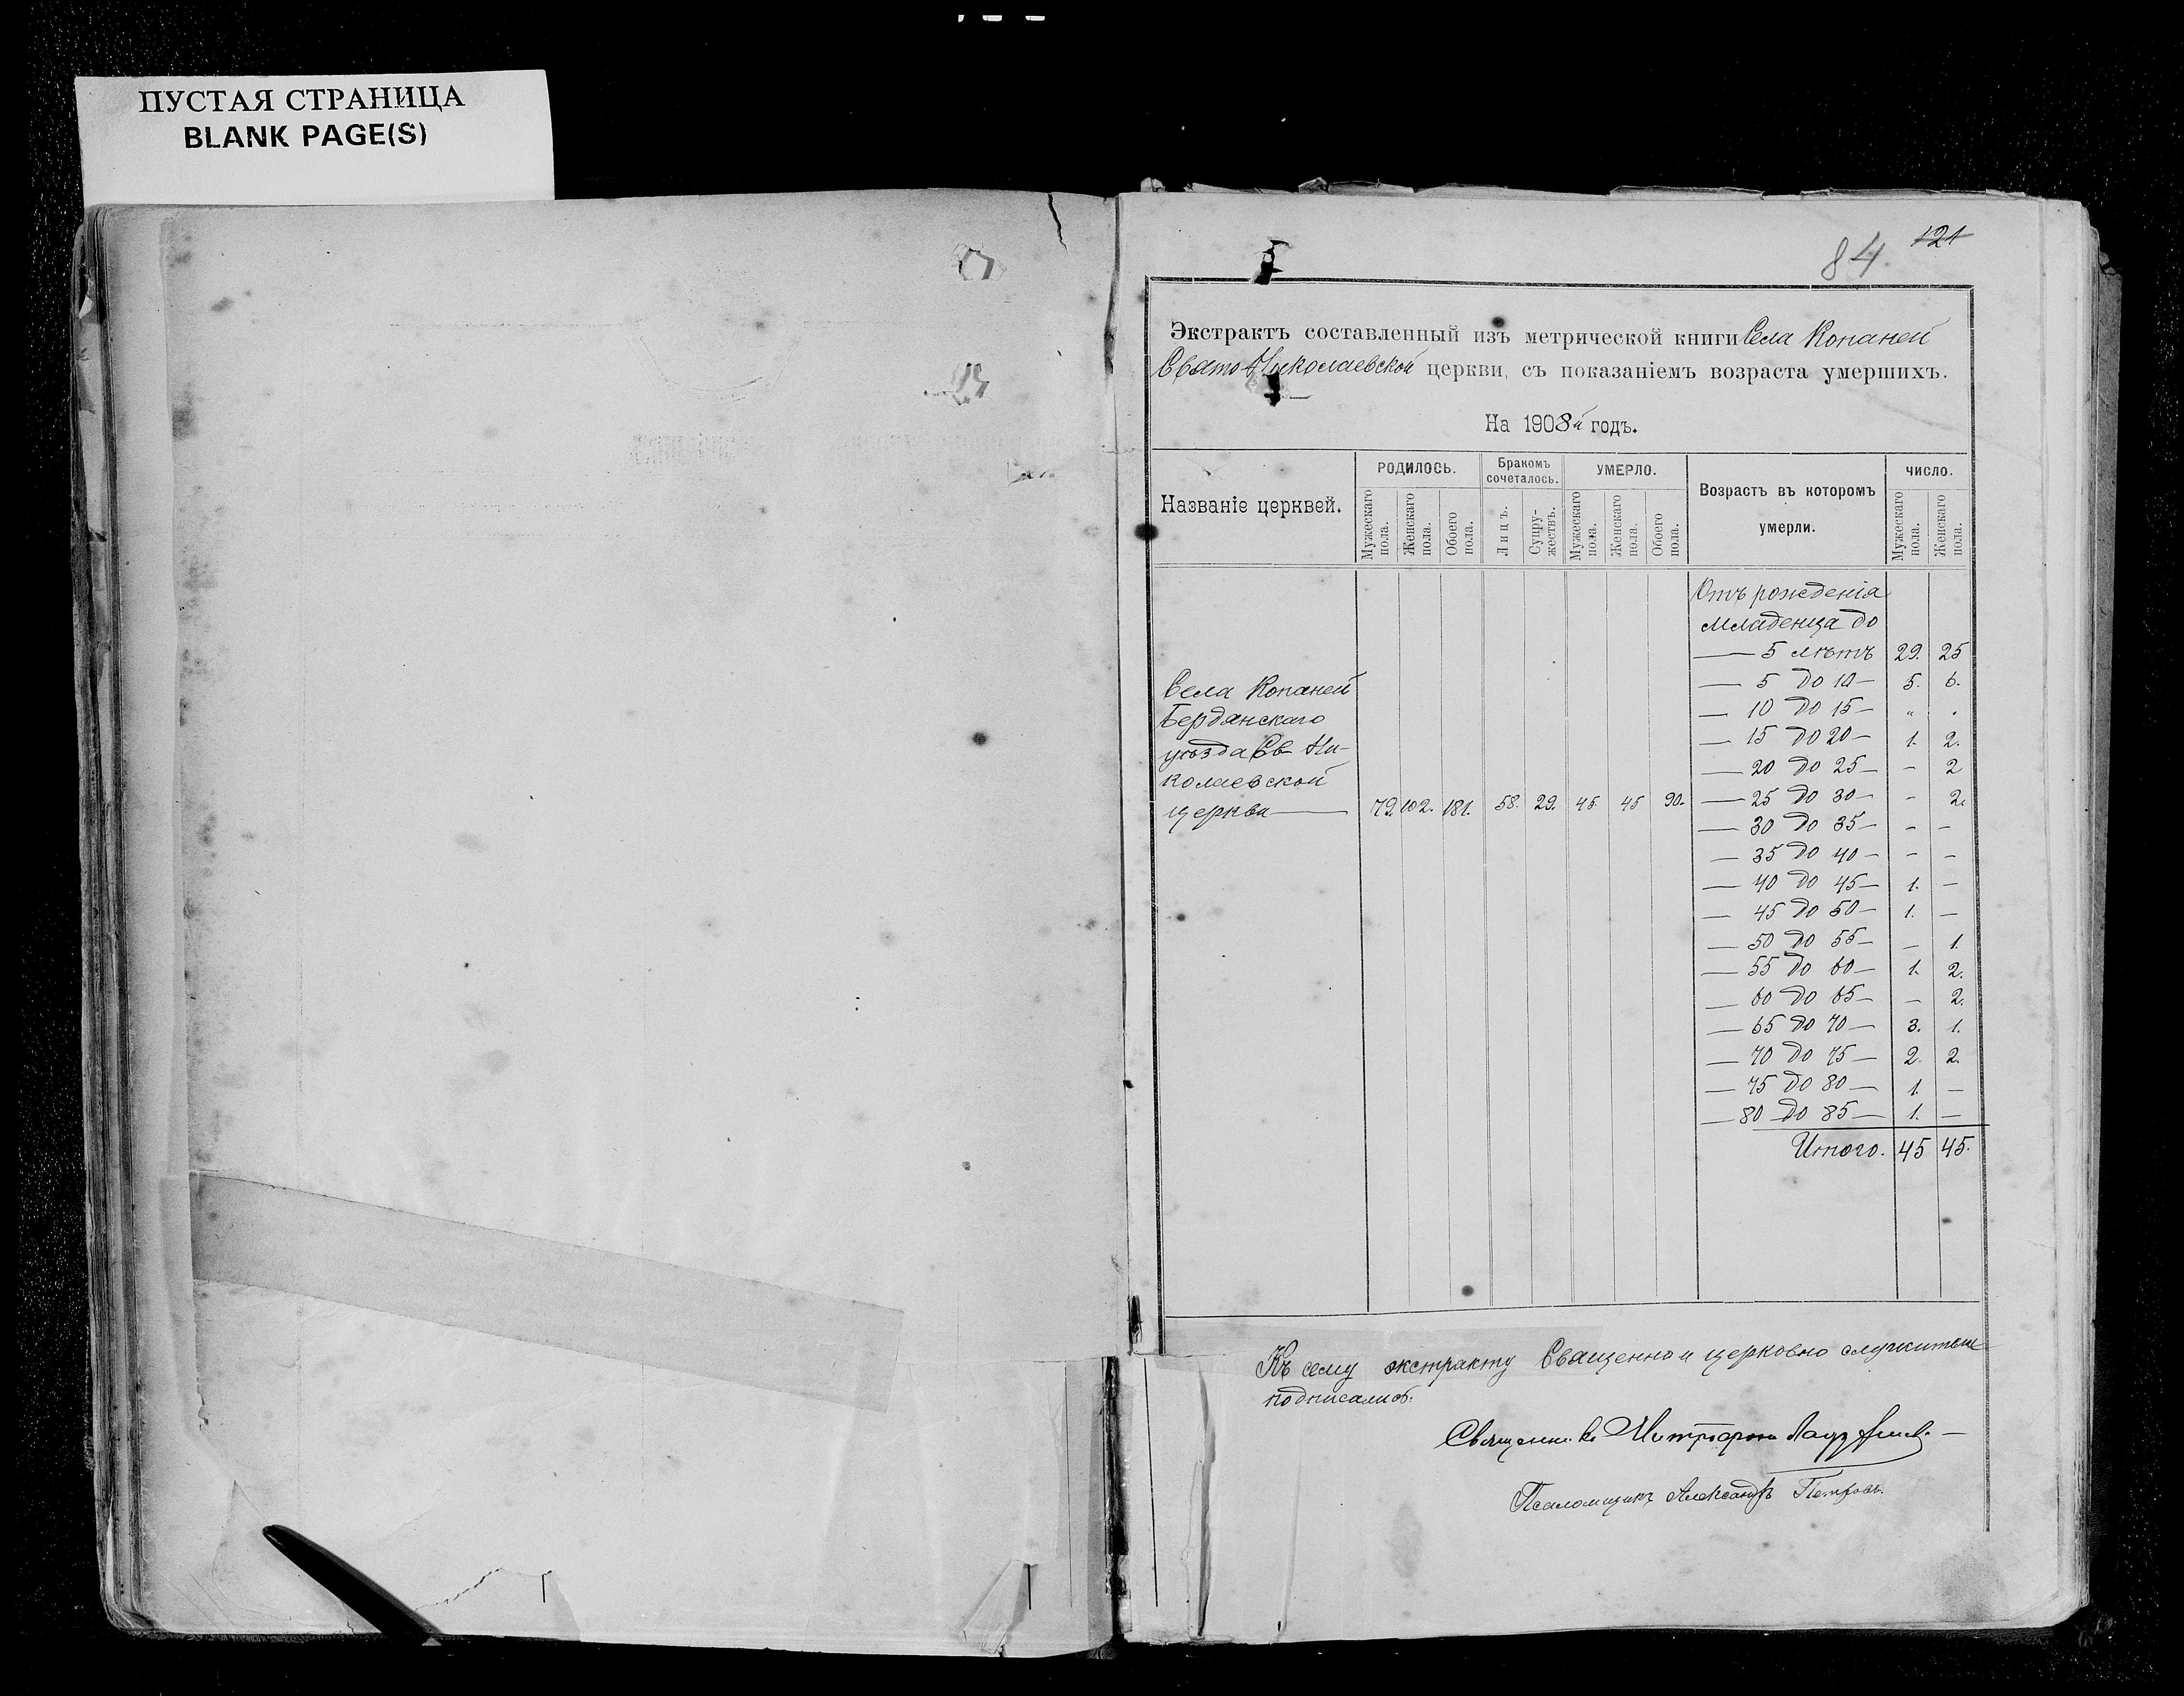 ПУСТАЯ СТРАНИЦА
BLANK PAGE(S)
84 121
Экстрактъ составленный изъ метрической книги Села Копаней
Свято Николаевской церкви, съ показаніемъ возраста умершихъ.
На 1908й годъ.
Названіе церквей. РОДИЛОСЬ. Бракомъ сочеталось. УМЕРЛО. Возрастъ въ которомъ умерли. ЧИСЛО.
Мужескаго пола. Женскаго пола. Обоего пола. Лицъ. Супружествъ. Мужескаго пола. Женскаго пола. Обоего пола. Мужескаго пола. Женскаго пола.
Отъ рожденія
младенца до
— 5 лѣтъ 29. 25
Села Копаней — 5 до 10 — 5. 6.
Бердянскаго — 10 до 15 — " .
уѣзда Св Ни- — 15 до 20 — 1. 2.
колаевской — 20 до 25 — - 2
церкви — 79. 102. 181. 58. 29. 45. 45 90. — 25 до 30 — - 2.
— 30 до 35 — - —
— 35 до 40 — - —
— 40 до 45 — 1. —
— 45 до 50 — 1. —
— 50 до 55 — — 1.
— 55 до 60 — 1. 2.
— 60 до 65 — — 2.
— 65 до 70 — 3. 1.
— 70 до 75 — 2. 2.
— 75 до 80 — 1. —
— 80 до 85 — 1. —
Итого. 45 45.
Къ сему экстракту Священно и церковно служители
подписались:
Священникъ Митрофанъ
Псаломщикъ Александръ Петровъ.